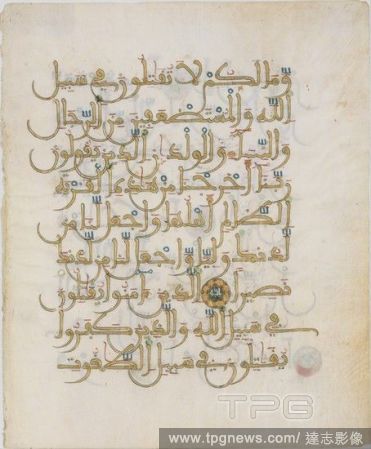 وما لكم لا تقتلون في سبيل
الله والمستضعفين من الرجال
والنسا والولدن الذين يقولون
ربنا أخرجنا من هذه القرية
الظالم أهلها واجعل لنا من
لدنك وليا واجعل لنا من لدنك
نصيرا الذين ءامنوا يقتلون
في سبيل الله والذين كفروا
يقتلون في سبيل الطغوت
TPG
www.tpgnews.com/ 達志影像